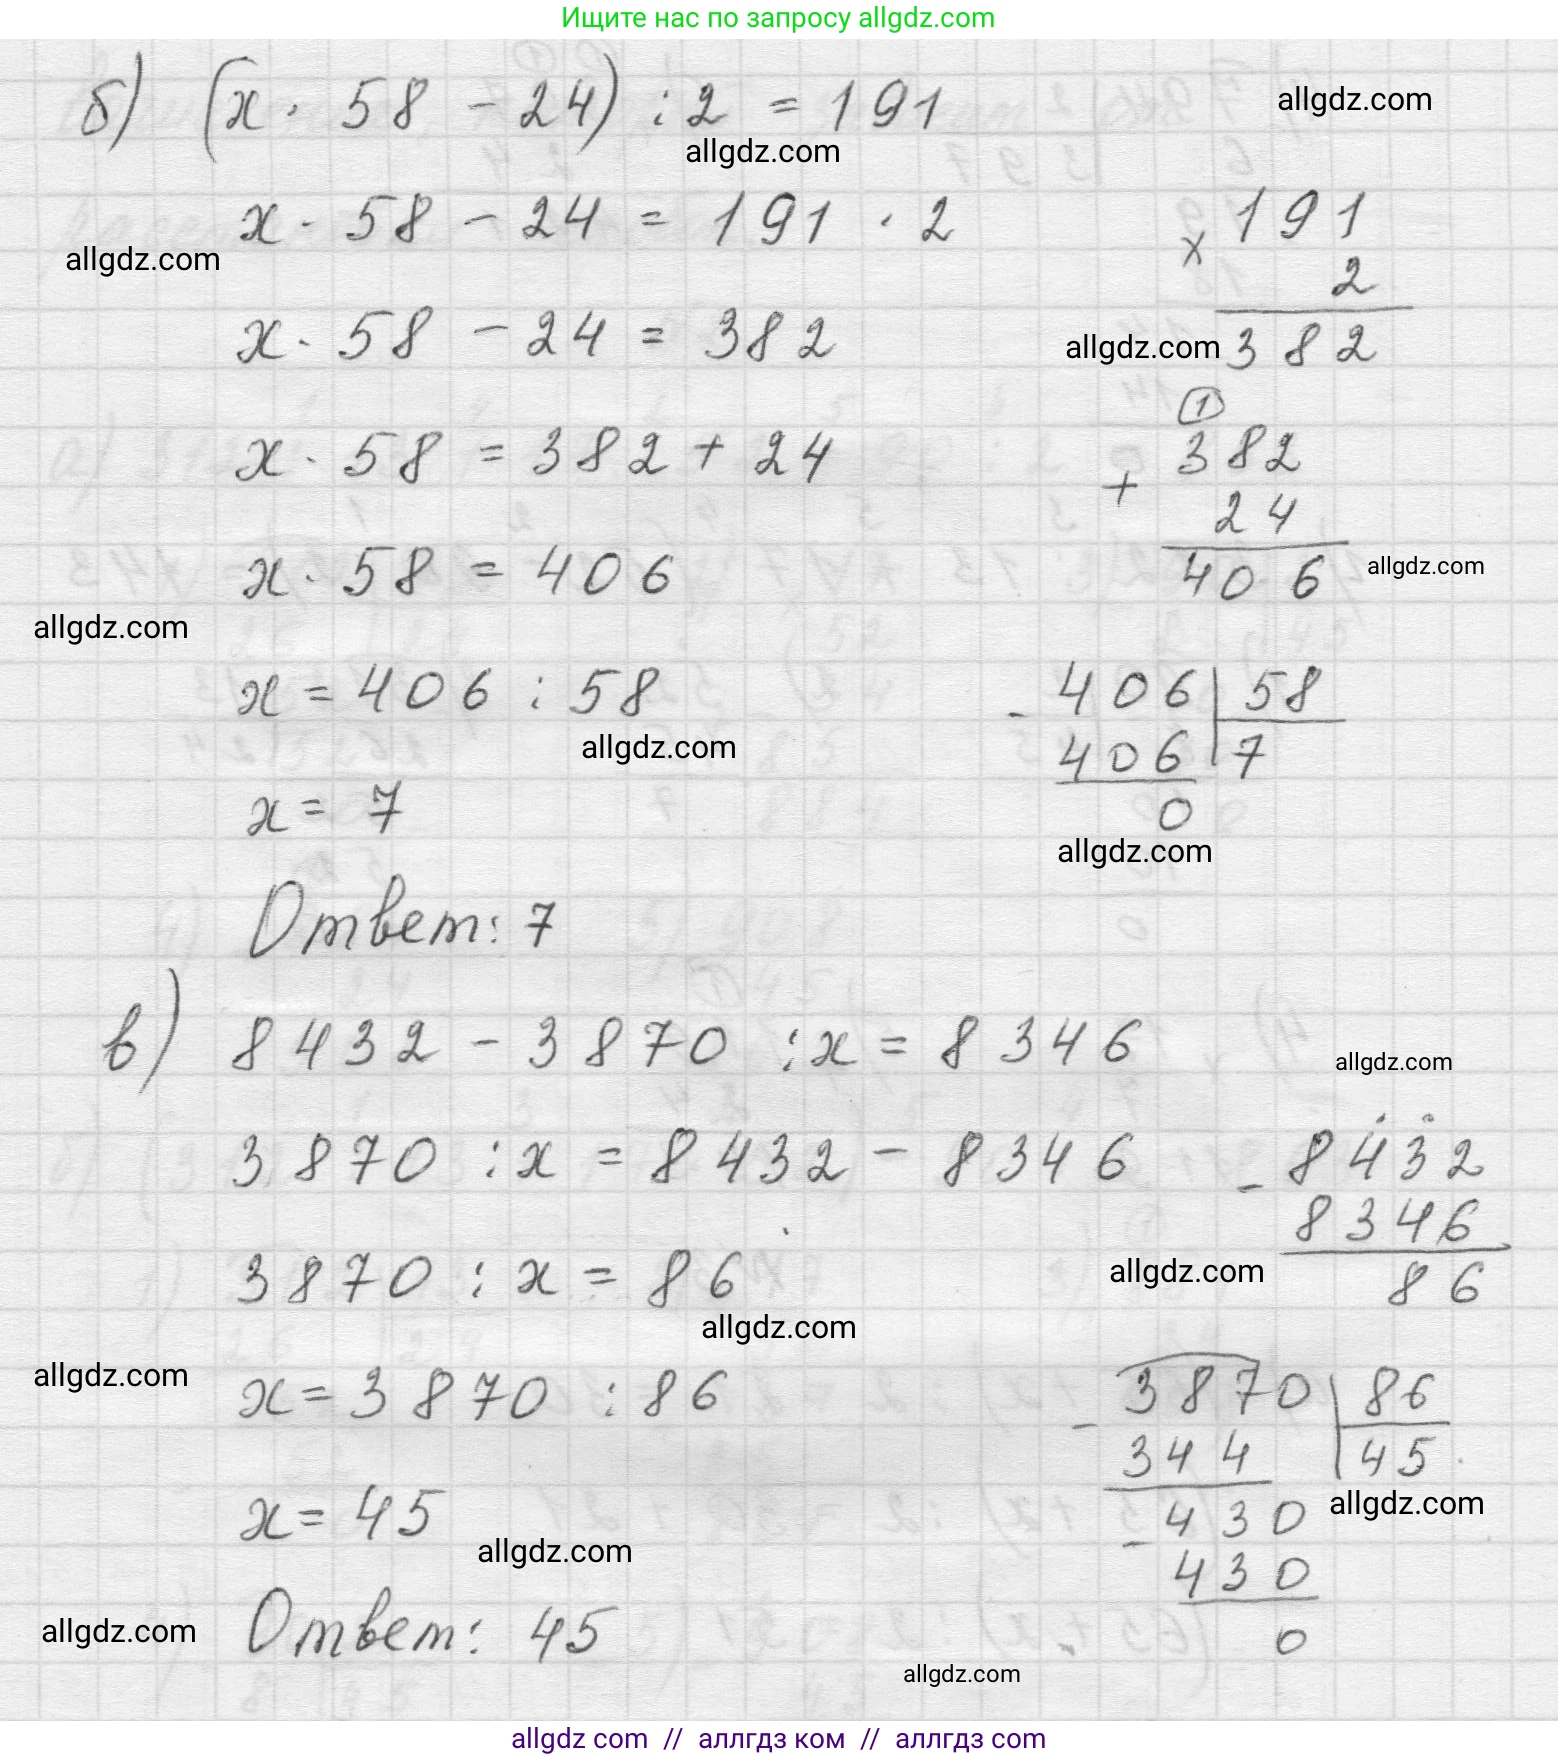 Ищите нас по запросу allgdz.com
б) (x · 58 - 24) : 2 = 191
allgdz.com
allgdz.com
x · 58 - 24 = 191 · 2
× 191
2
382
allgdz.com
x · 58 - 24 = 382
allgdz.com
x · 58 = 382 + 24
1
+ 382
24
406
allgdz.com
x · 58 = 406
allgdz.com
x = 406 : 58
- 406 | 58
406 | 7
0
allgdz.com
x = 7
allgdz.com
Ответ: 7
в) 8432 - 3870 : x = 8346
allgdz.com
3870 : x = 8432 - 8346
- 8432
8346
86
allgdz.com
3870 : x = 86
allgdz.com
allgdz.com
x = 3870 : 86
- 3870 | 86
344 | 45
- 430
430
0
allgdz.com
x = 45
allgdz.com
allgdz.com
Ответ: 45
allgdz.com
allgdz com // аллгдз ком // аллгдз com